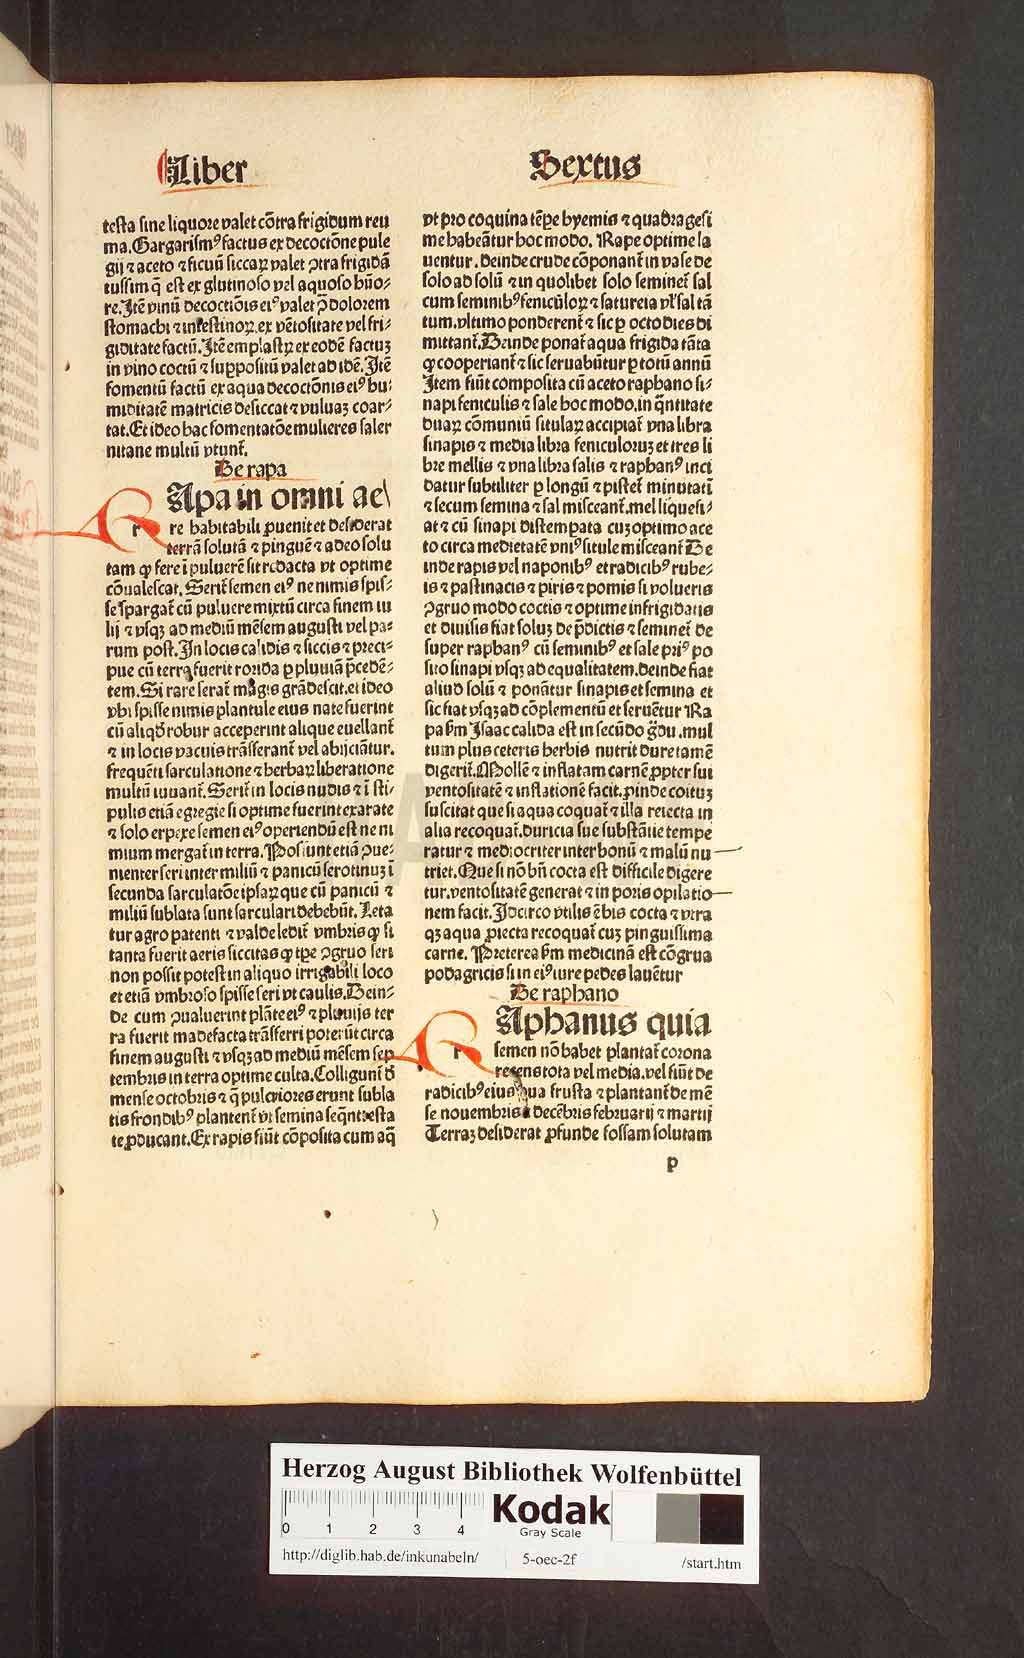 Liber
Sextus
testa sine liquore valet cōtra frigidum reu
ma. Gargarismꝰ factus ex decoctōne pule
gij ⁊ aceto ⁊ ficuū siccaꝝ valet ꝯtra frigidā
tussim q̄ est ex glutinoso vel aquoso hūo-
re. Itē vinū decoctiōis eiꝰ valet ꝯ̄ dolorem
stomachi ⁊ intestinoꝝ ex vētositate vel fri-
giditate factū. Itē emplastꝝ ex eodē factuꝫ
in vino coctū ⁊ suꝑpositū valet ad idē. Itē
fomentū factū ex aqua decoctōnis eiꝰ hu-
miditatē matricis desiccat ⁊ vuluaꝫ coar-
tat. Et ideo hac fomentatōe mulieres saler
nitane multū vtunt᷑.
De rapa
r
Apa in omni ae
re habitabili ꝓuenit et desiderat
terrā solutā ⁊ pinguē ⁊ adeo solu
tam ꝙ fere ī puluerē sit redacta vt optime
cōualescat. Serit᷑ semen eiꝰ ne nimis spis-
se spargat᷑ cū puluere mixtū circa finem iu
lij ⁊ vsqꝫ ad mediū mēsem augusti vel pa-
rum post. In locis calidis ⁊ siccis ⁊ preci-
pue cū terra fuerit rorida ꝑ pluuiā p̄cedē-
tem. Si rare serat᷑ magis grādescit. et ideo
vbi spisse nimis plantule eius nate fuerint
cū aliqd̄ robur acceperint alique euellant᷑
⁊ in locis vacuis trāsferant᷑ vel abijciātur.
frequēti sarculatione ⁊ herbaꝝ liberatione
multū iuuant᷑. Serit᷑ in locis nudis ⁊ ī sti-
pulis etiā egregie si optime fuerint exarate
⁊ solo erpere semen eiꝰ operiendū est ne ni
mium mergat᷑ in terra. Possunt etiā ꝯue-
nienter seri inter miliū ⁊ panicū serotinuꝫ ī
secunda sarculatōe ipsaꝝ que cū panicū ⁊
miliū sublata sunt sarculari debebūt. Leta
tur agro patenti ⁊ valde ledit᷑ vmbris ꝙ si
tanta fuerit aeris siccitas ꝙ tꝑe ꝯgruo seri
non possit potest in aliquo irrigabili loco
et etiā vmbroso spisse seri vt caulis. Dein-
de cum ꝯualuerint plāte eiꝰ ⁊ pluuijs ter
ra fuerit madefacta trāsferri poterūt circa
finem augusti ⁊ vsqꝫ ad mediū mēsem sep
tembris in terra optime culta. Colligunt᷑ d̄
mense octobris ⁊ q̄ pulcriores erunt subla
tis frondibꝰ plantent᷑ vt semina seq̄nt esta
te ꝓducant. Ex rapis fiūt cōposita cum aq̄
vt pro coquina tēpe hyemis ⁊ quadragesi
me habeātur hoc modo. Rape optime la
uentur. deinde crude cōponant᷑ in vase de
solo ad solū ⁊ in quolibet solo seminet᷑ sal
cum seminibꝰ feniculoꝝ ⁊ satureia vl̓ sal tā
tum. vltimo ponderent᷑ ⁊ sic ꝑ octo dies di
mittant᷑. Deinde ponat᷑ aqua frigida tāta
ꝙ cooperiant᷑ ⁊ sic seruabūtur ꝑ totū annū
Item fiūt composita cū aceto raphano si-
napi feniculis ⁊ sale hoc modo. in q̄ntitate
duaꝝ cōmuniū situlaꝝ accipiat᷑ vna libra
sinapis ⁊ media libra feniculoruꝫ et tres li
bre mellis ⁊ vna libra salis ⁊ raphanꝰ inci
datur subtiliter ꝑ longū ⁊ pistet᷑ minutatī
⁊ secum semina ⁊ sal misceant᷑. mel liquefi-
at ⁊ cū sinapi distempata cuꝫ optimo ace
to circa medietatē vniꝰ situle misceant᷑ De
inde rapis vel naponibꝰ et radicibꝰ rube-
is ⁊ pastinacis ⁊ piris ⁊ pomis si volueris
ꝯgruo modo coctis ⁊ optime infrigidatis
et diuisis fiat soluꝫ de p̄dictis ⁊ seminet᷑ de
super raphanꝰ cū seminibꝰ et sale priꝰ po
sito sinapi vsqꝫ ad equalitatem. deinde fiat
aliud solū ⁊ ponātur sinapis et semina et
sic fiat vsqꝫ ad cōplementū et seruētur Ra
pa ẜm Isaac calida est in secūdo ḡdu. mul
tum plus ceteris herbis nutrit dure tamē
digerit᷑. Mollē ⁊ inflatam carnē ꝓpter sui
ventositatē ⁊ inflationē facit. ꝓinde coituꝫ
suscitat que si aqua coquat᷑ ⁊ illa reiecta in
alia recoquat᷑. duricia sue substātie tempe
ratur ⁊ mediocriter inter bonū ⁊ malū nu
triet. Que si nō bn̄ cocta est difficile digere
tur. ventositatē generat ⁊ in poris opilatio
nem facit. Idcirco vtilis ē bis cocta ⁊ vtra
qꝫ aqua ꝓiecta recoquat᷑ cuꝫ pinguissima
carne. Preterea ẜm medicinā est cōgrua
podagricis si in eiꝰ iure pedes lauētur
De raphano
r
Aphanus quia
semen nō habet plantat᷑ corona
recens tota vel media. vel fiūt de
radicibꝰ eius qua frusta ⁊ plantant᷑ de mē
se nouembris decēbris februarij ⁊ martij
Terraꝫ desiderat ꝓfunde fossam solutam
p
Herzog August Bibliothek Wolfenbüttel
0 1 2 3 4
Kodak
Gray Scale
http://diglib.hab.de/inkunabeln/ 5-oec-2f /start.htm